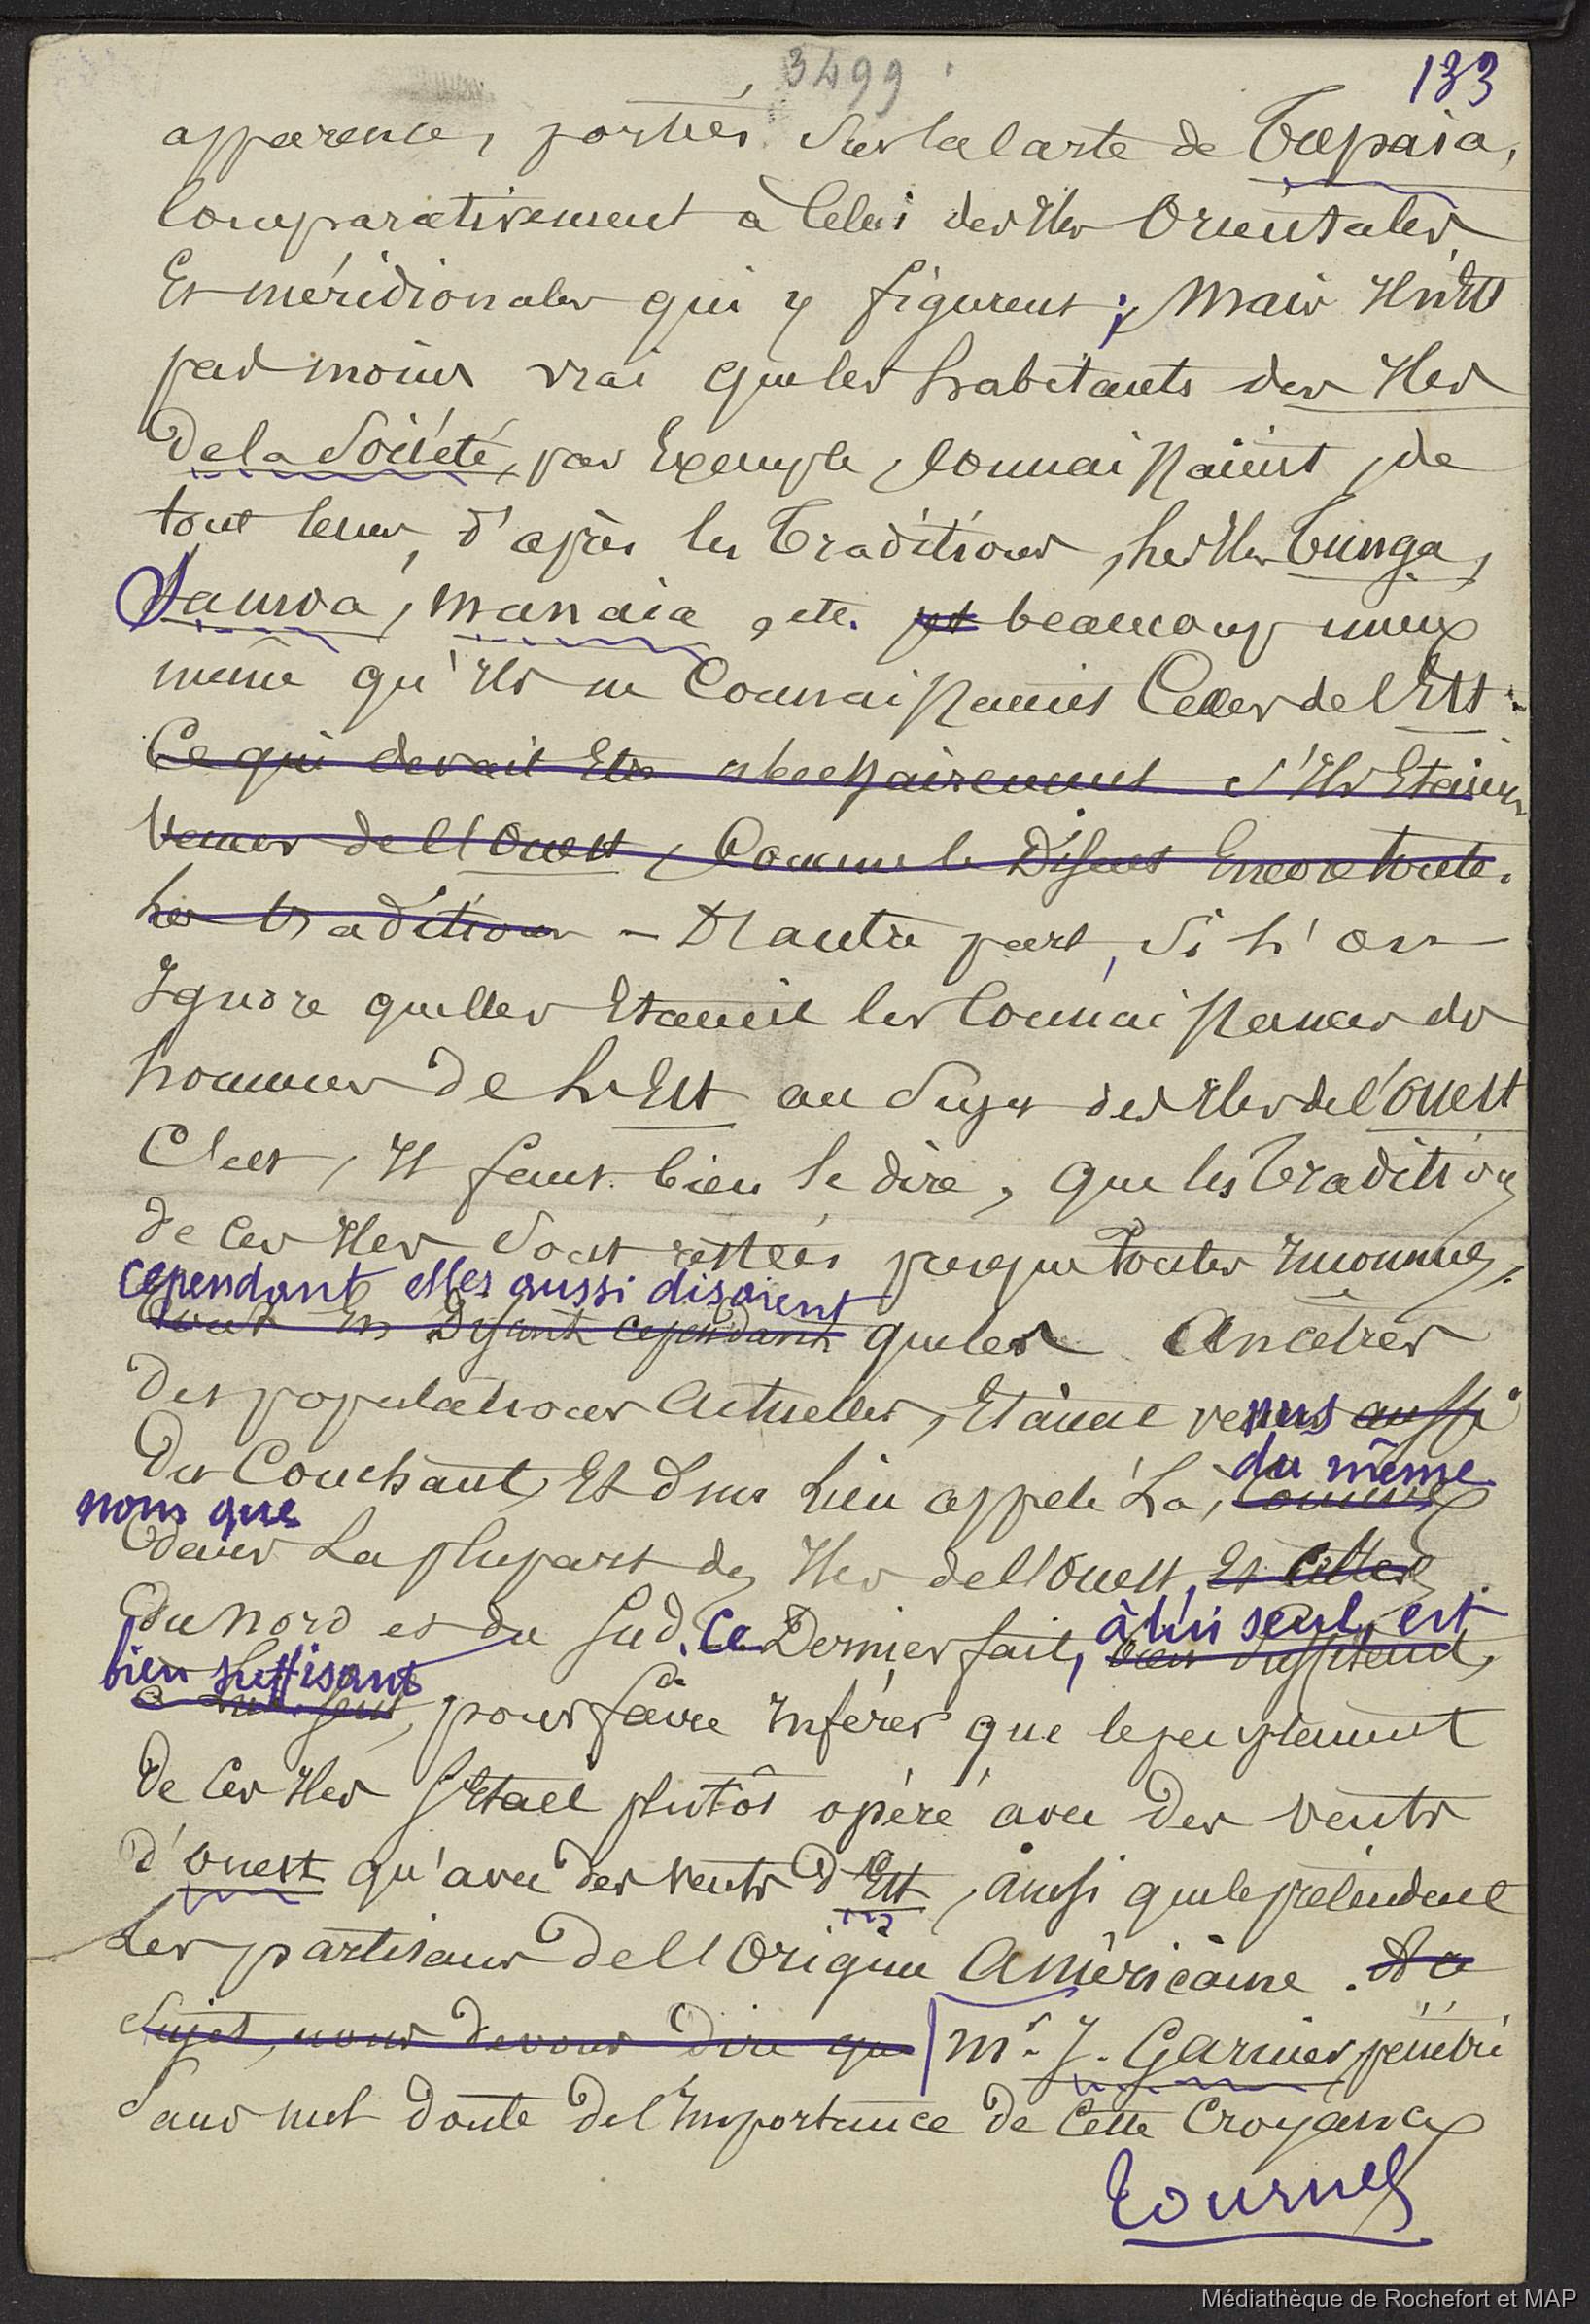 3499
133
apparence, portées sur la Carte de Tupaia,
Comparativement à Celui des Iles Orientales
Et méridionales qui y figurent ; Mais Il n'Est
pas moins vrai que les habitants des Iles
De la Société, par Exemple, Connaissaient, de
tout tems, d'après les Traditions, les Iles Tunga,
Samoa, Manaia, etc. et beaucoup mieux
même qu'Ils ne Connaissaient Celles de l'Est.
Ce qui devait Etre nécessairement s'Ils Etaient
Venus de l'Ouest, Comme le Disent Encore toutes
les traditions - D'autre part, si l'on
Ignore quelles Etaient les Connaissances des
hommes de l'Est au Sujet des Iles de l'Ouest
C'est, Il faut bien le dire, que les Traditions
de Ces Iles Sont restées presque toutes Inconnues.
cependant elles aussi disaient
tout En Disant cependant que les Ancêtres
Des populations Actuelles, Etaient venus aussi
du même
Du Couchant, Et d'un lieu appelé Là, Comme
nom que
dans La plupart des Iles de l'Ouest, Et Celles
Du Nord et du Sud. Ce Dernier fait, bien suffisant,
à lui seul, est
bien suffisant
à lui seul, pour faire Inférer que le peuplement
De Ces Iles s'Etait plutôt opéré avec Des vents
d'Ouest qu'avec Des vents D'Est, ainsi que le prétendent
Les partisans De l'Origine Américaine. A ce
Sujet, nous Devons Dire que Mr. J. Garnier, pénétré
Sans nul Doute De l'Importance De Cette Croyance
Tournez
Médiathèque de Rochefort et MAP